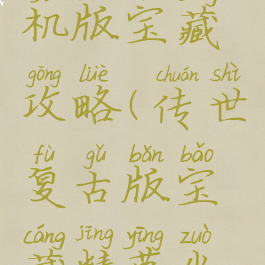 机版宝藏
gōng lüè chuán shì
攻略(传世
fù gǔ bǎn bǎo
复古版宝
cáng jīng yīng zuò